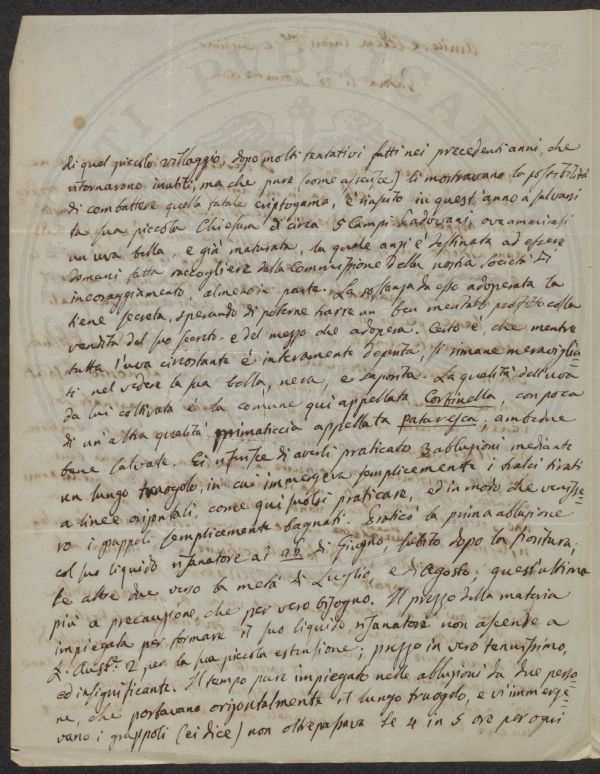 di quel piccolo villaggio, dopo molti tentativi fatti nei precedenti anni, che
ritornarono inutili, ma che pure (come asserisce) li mostravano la possibilità
di combattere quella fatale criptogama, è riuscito in quest'anno a salvarsi
la sua piccola Chiesura di circa 5 Campi Padovani, ove ammirasi
un'uva bella, e già maturata, la quale anzi è destinata ad essere
domani fatta raccogliere dalla Commissione della nostra Società d'
incoraggiamento, almeno in parte. La sostanza da esso adoperata la
tiene secreta, sperando di poterne trarre un ben meritato profitto colla
vendita del suo secreto e del mezzo che adopera. Certo è, che mentre
tutta l'uva circostante è interamente deperita, si rimane meraviglia=
ti nel vedere la sua bella, nera, e saporita. La qualità dell'uva
da lui coltivata è la comune qui appellata Corbinella, con poca
di un'altra qualità primaticcia appellata Pataresca; ambedue
bene salvate. Ei riferisce di averli praticato 3 abluzioni mediante
un lungo truogolo, in cui immergeva semplicemente i tralci tirati
a linee orizontali, come qui suolsi praticare, ed in modo che venisse=
ro i grappoli semplicemente bagnati. Praticò la prima abluzione
col suo liquido risanatore ai di Giugno, subito dopo la fioritura;
le altre due verso la metà di Luglio, e di Agosto; quest'ultima
più a precauzione, che per vero bisogno. Il prezzo della materia
impiegata per formare il suo liquido risanatore non ascende a
L. Aust.e 2 per la sua piccola estensione; prezzo in vero tenuissimo,
ed insignificante. Il tempo pure impiegato nelle abluzioni da due perso
ne, che portavano orizontalmente il lungo truogolo, e vi immerge=
vano i grappoli (ei dice) non oltrepassava le 4 in 5 ore per ogni